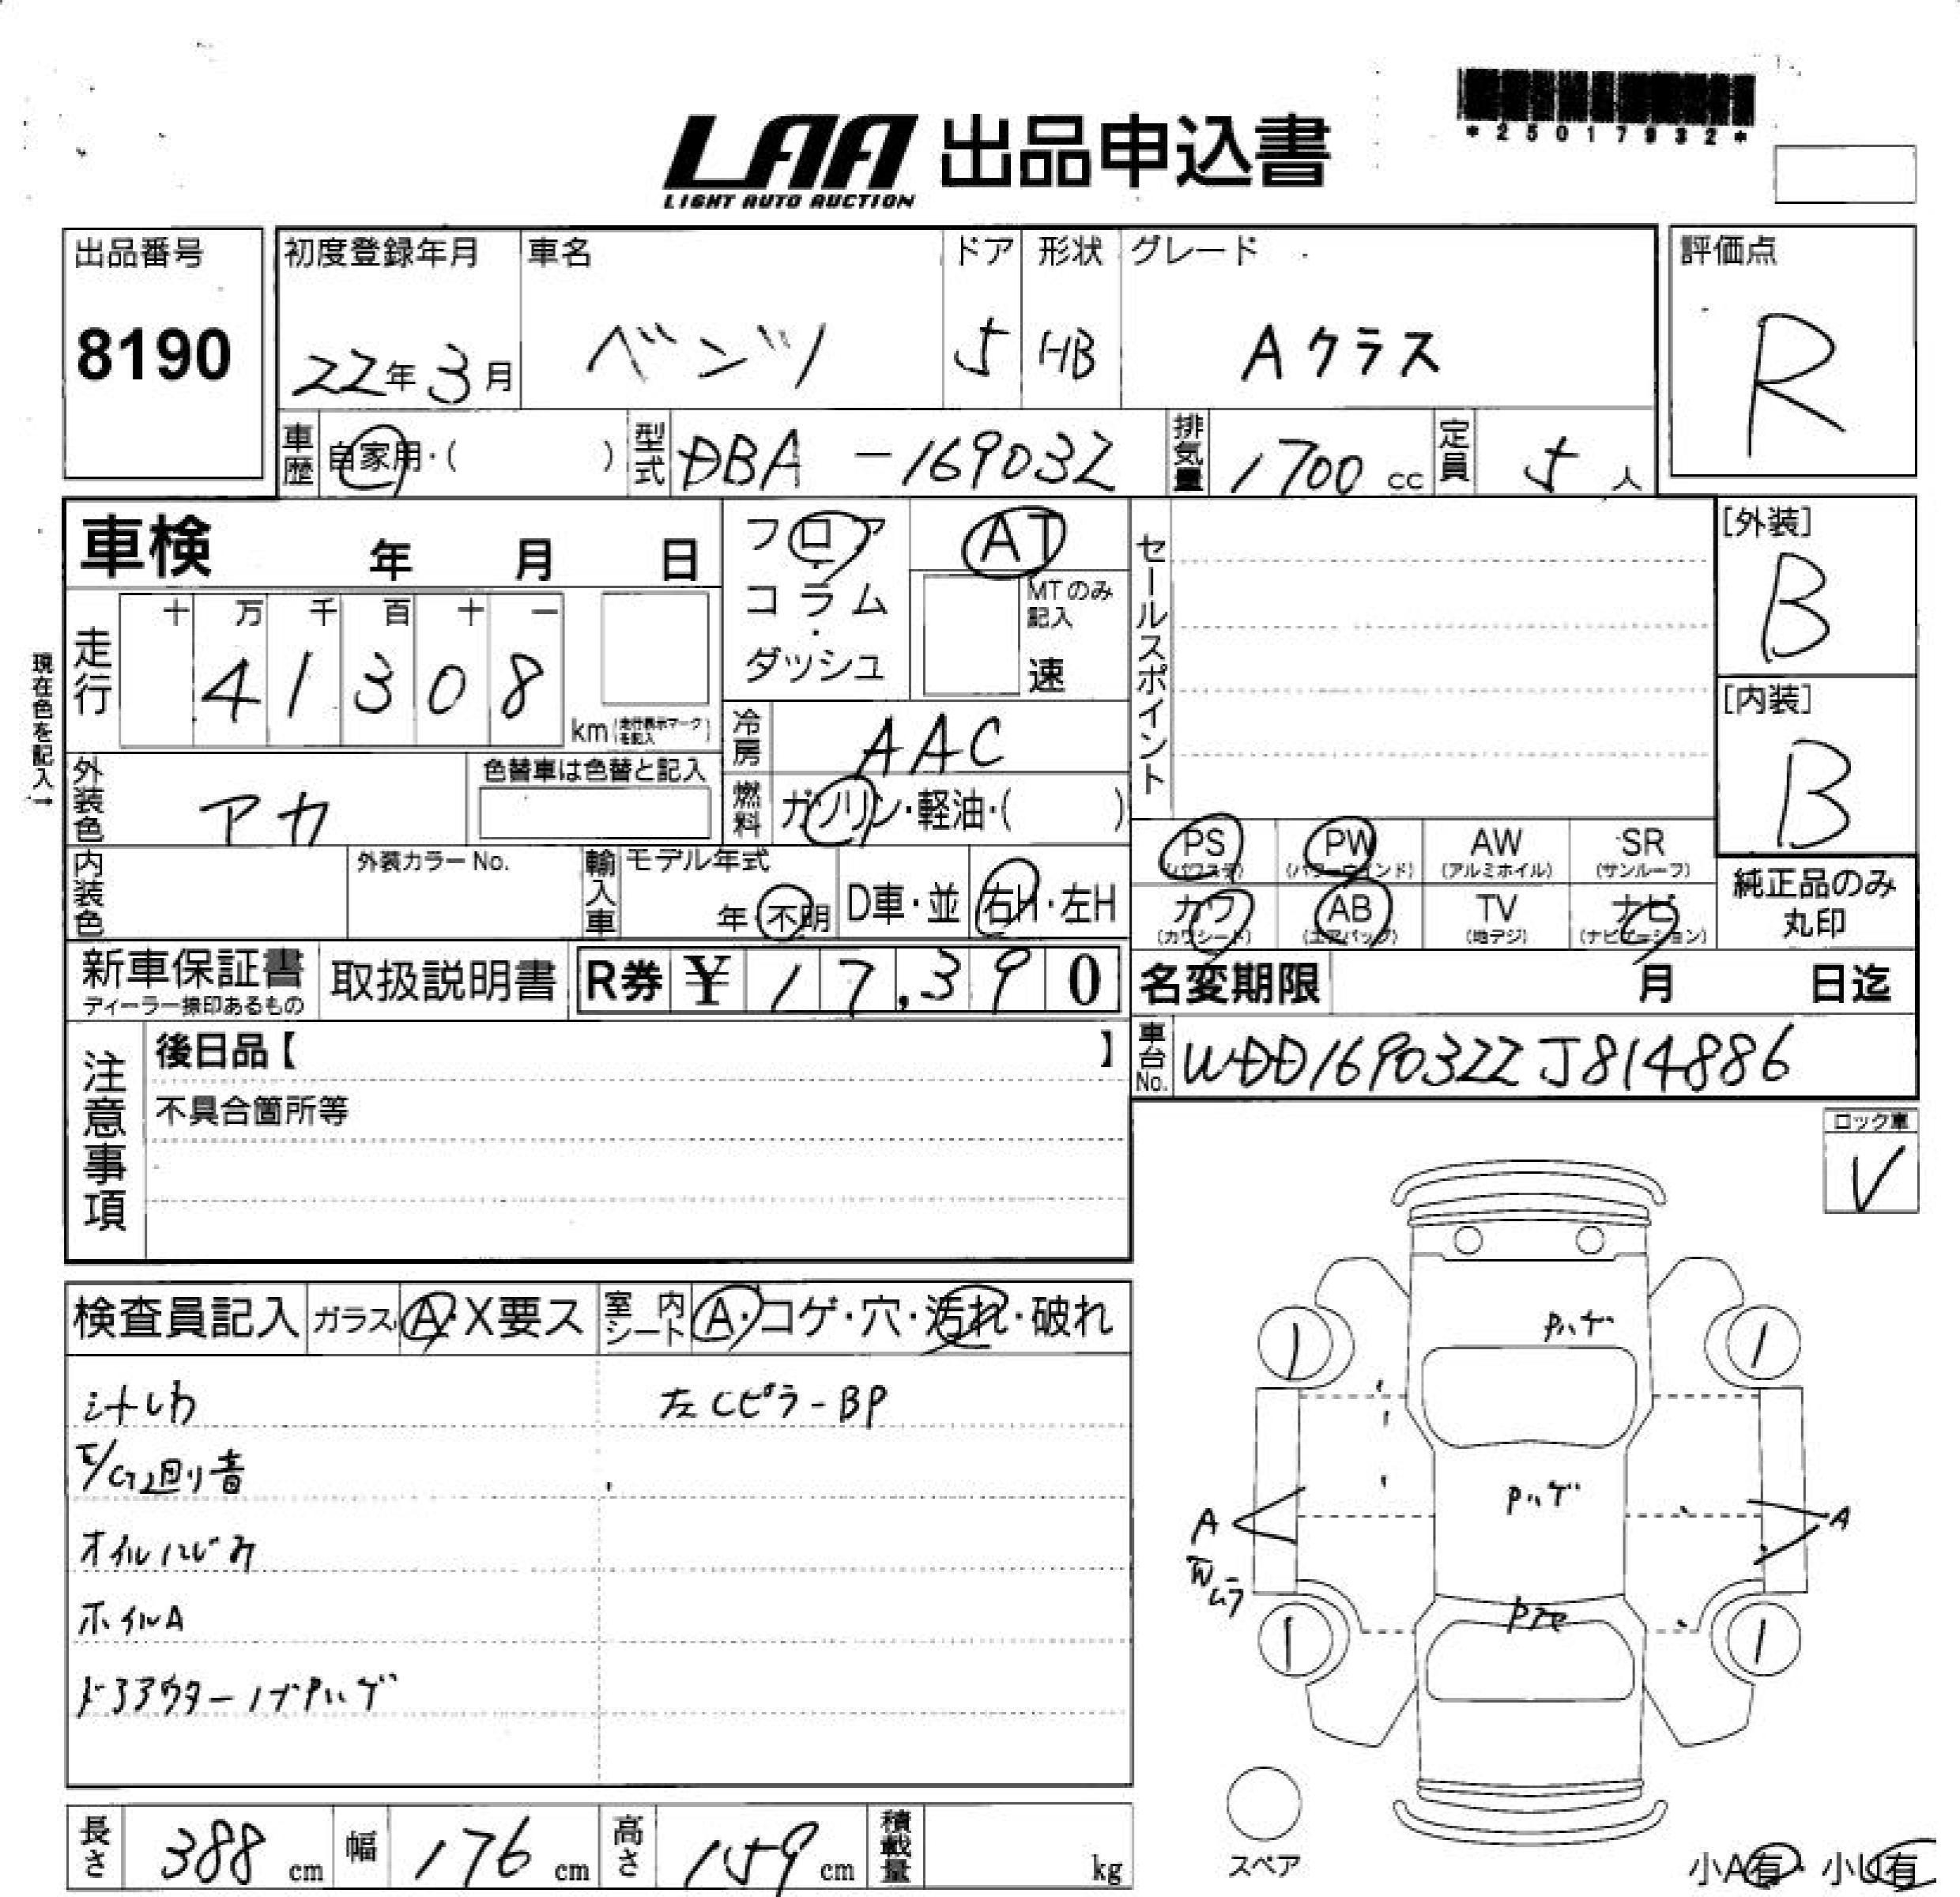 LAA 出品申込書
LIGHT AUTO AUCTION
*25017932*
出品番号
8190
初度登録年月
22年3月
車名
ベンツ
ドア
5
形状
HB
グレード
Aクラス
評価点
R
車歴
自家用・( )
型式
DBA-169032
排気量
1700cc
定員
5人
車検 年 月 日
フロア
・
コラム
・
ダッシュ
AT
MTのみ記入
速
セールスポイント
[外装]
B
[内装]
B
現在色を記入→
走行
十 万 千 百 十 一
4 1 3 0 8
km (走行表示マークを記入)
冷房
AAC
燃料
ガソリン・軽油・( )
外装色
アカ
色替車は色替と記入
内装色
外装カラーNo.
輸入車
モデル年式
年・不明
D車・並
右H・左H
PS (パワステ)
PW (パワーウインド)
AW (アルミホイル)
SR (サンルーフ)
カワ (カワシート)
AB (エアバッグ)
TV (地デジ)
ナビ (ナビゲーション)
純正品のみ
丸印
新車保証書
ディーラー捺印あるもの
取扱説明書
R券 ¥ 17,390
名変期限 月 日迄
車台No.
WDD1690322J814886
注意事項
後日品【 】
不具合箇所等
ロック車
V
検査員記入
ガラス
A・X要ス
室内シート
A・コゲ・穴・汚れ・破れ
シートしわ
左Cピラ-BP
E/G廻り音
オイルにじみ
ホイルA
ドアアウターノブPハゲ
Pハゲ
Pハゲ
A
A
長さ
388cm
幅
176cm
高さ
159cm
積載量
kg
スペア
小A有・小U有